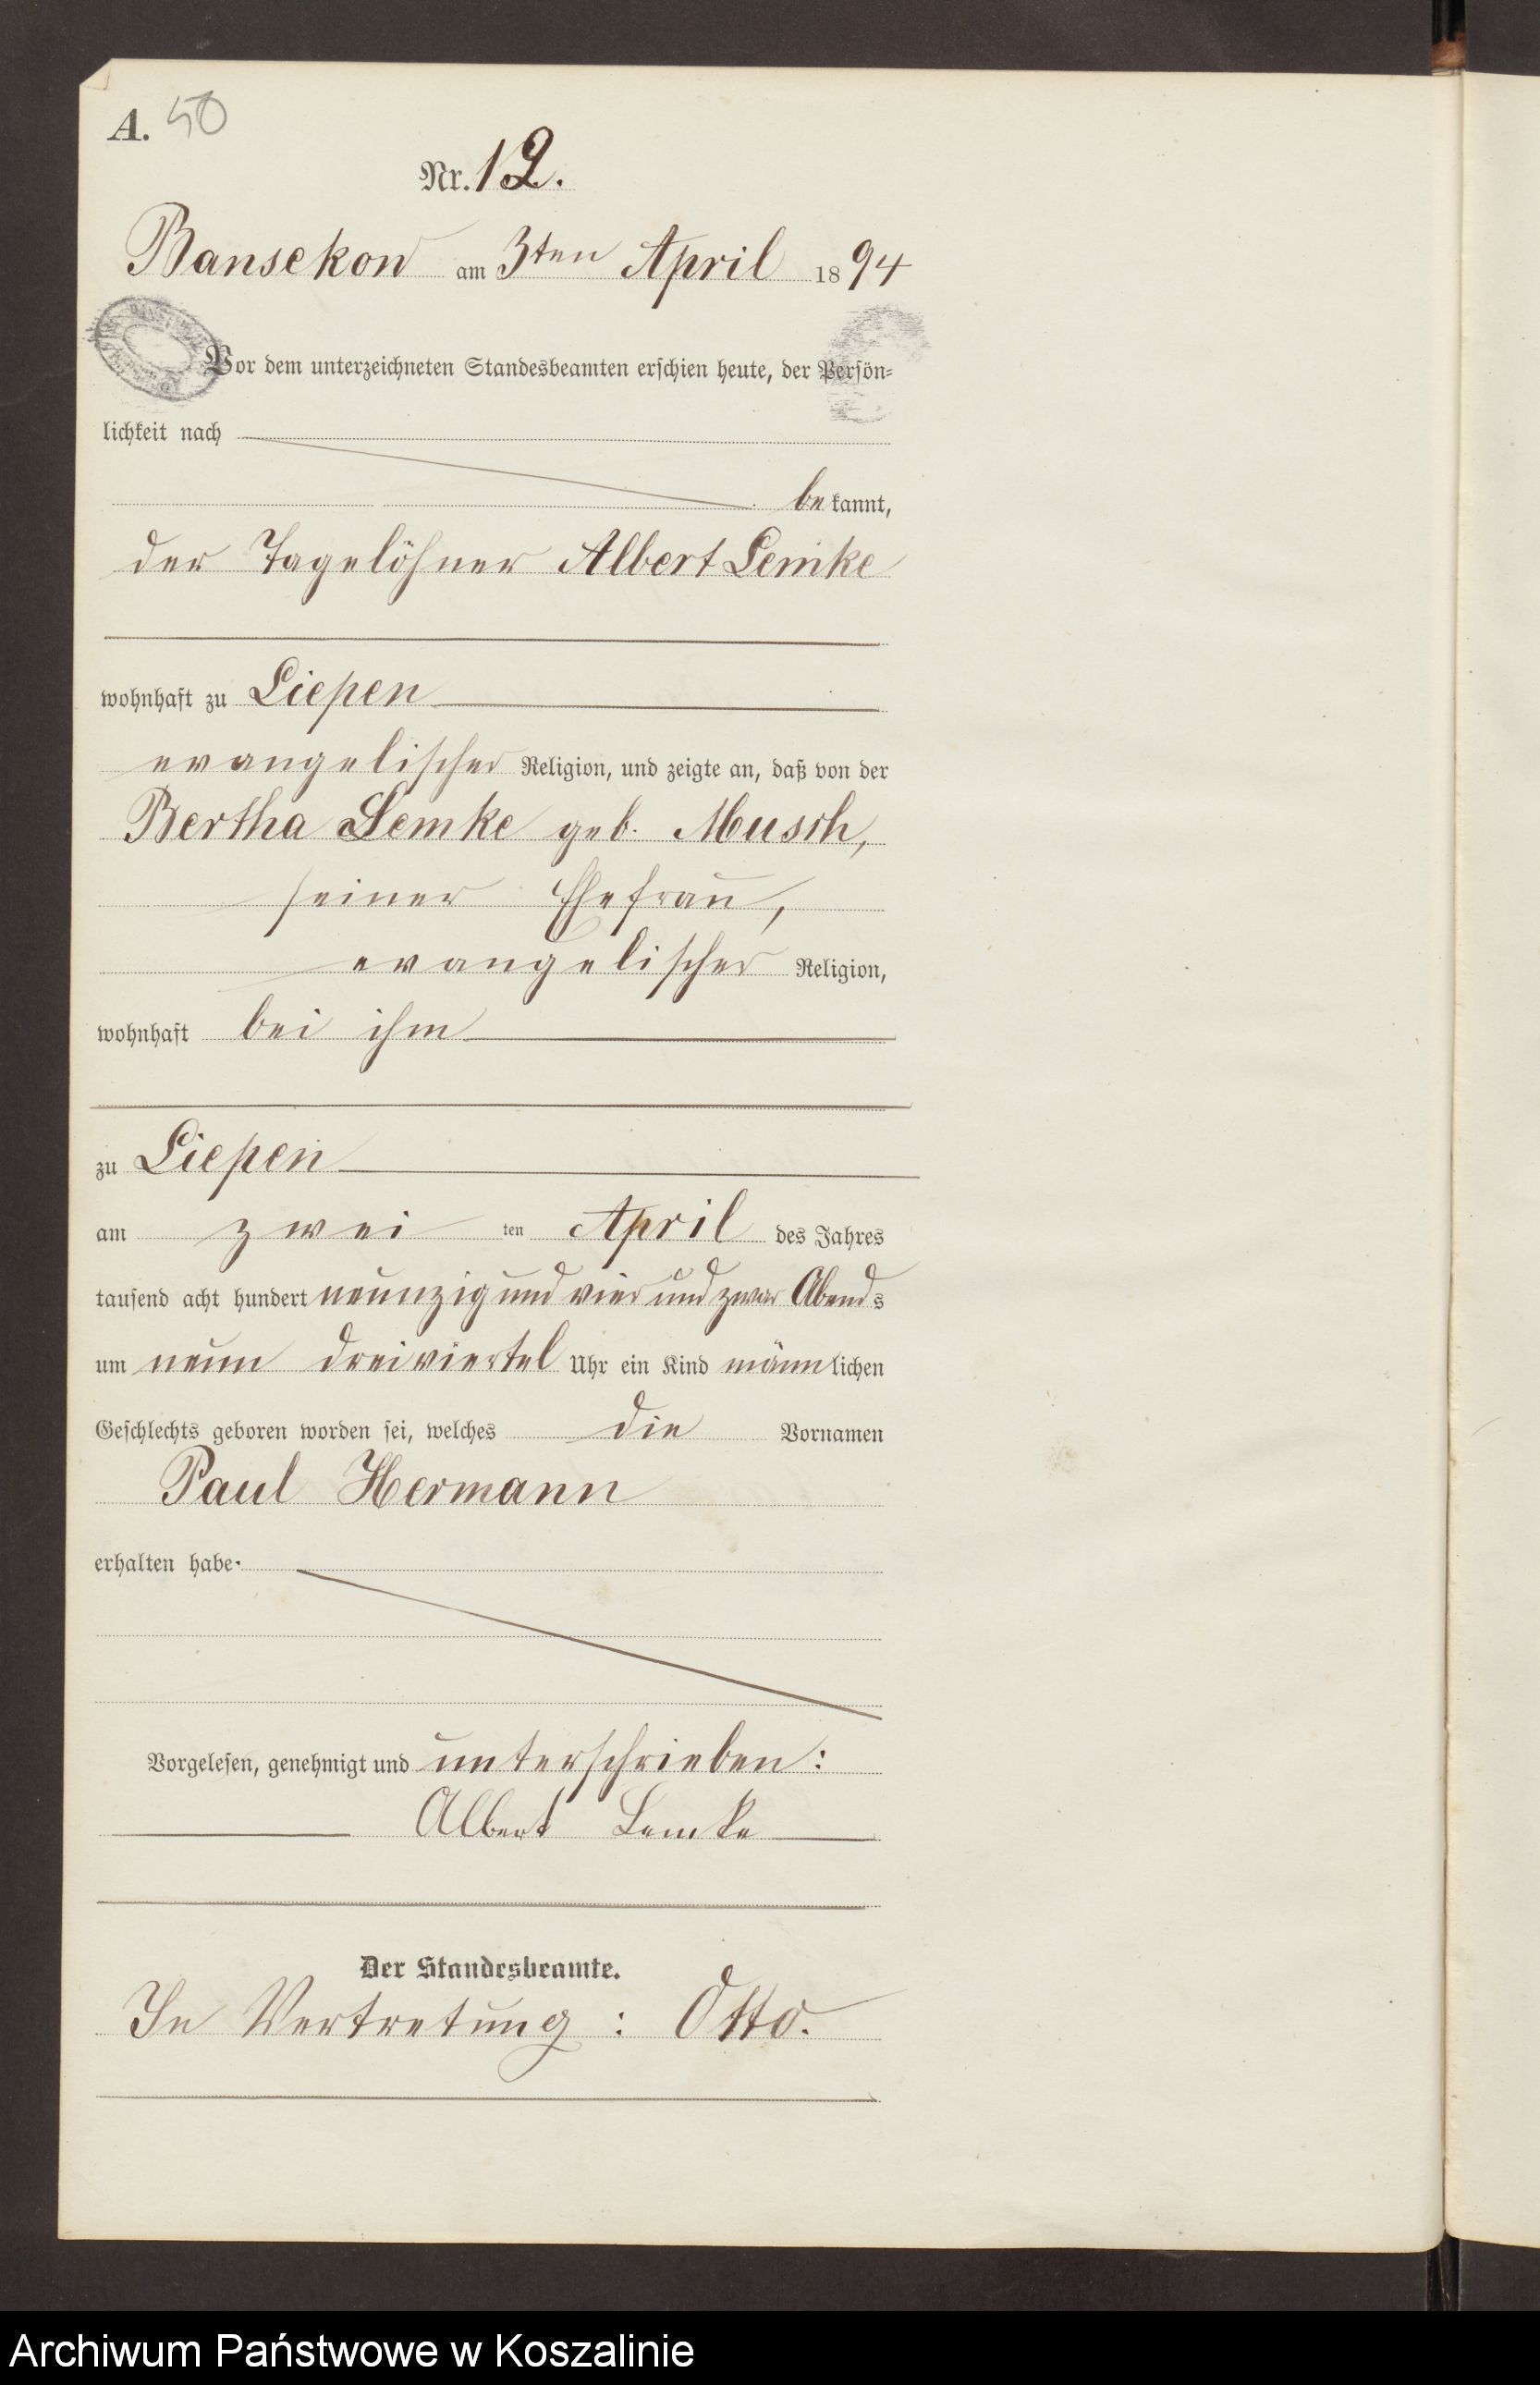 A. 50
Nr. 12.
Bansekow am 3ten April 1894
Vor dem unterzeichneten Standesbeamten erschien heute, der Persön-
lichkeit nach
bekannt,
der Tagelöhner Albert Lemke
wohnhaft zu Liepen
evangelischer Religion, und zeigte an, daß von der
Bertha Lemke geb. Musch,
seiner Ehefrau,
evangelischer Religion,
wohnhaft bei ihm
zu Liepen
am zwei ten April des Jahres
tausend acht hundert neunzig und vier und zwar Abends
um neun dreiviertel Uhr ein Kind männlichen
Geschlechts geboren worden sei, welches die Vornamen
Paul Hermann
erhalten habe.
Vorgelesen, genehmigt und unterschrieben:
Albert Lemke
Der Standesbeamte.
In Vertretung: Otto.
Archiwum Państwowe w Koszalinie